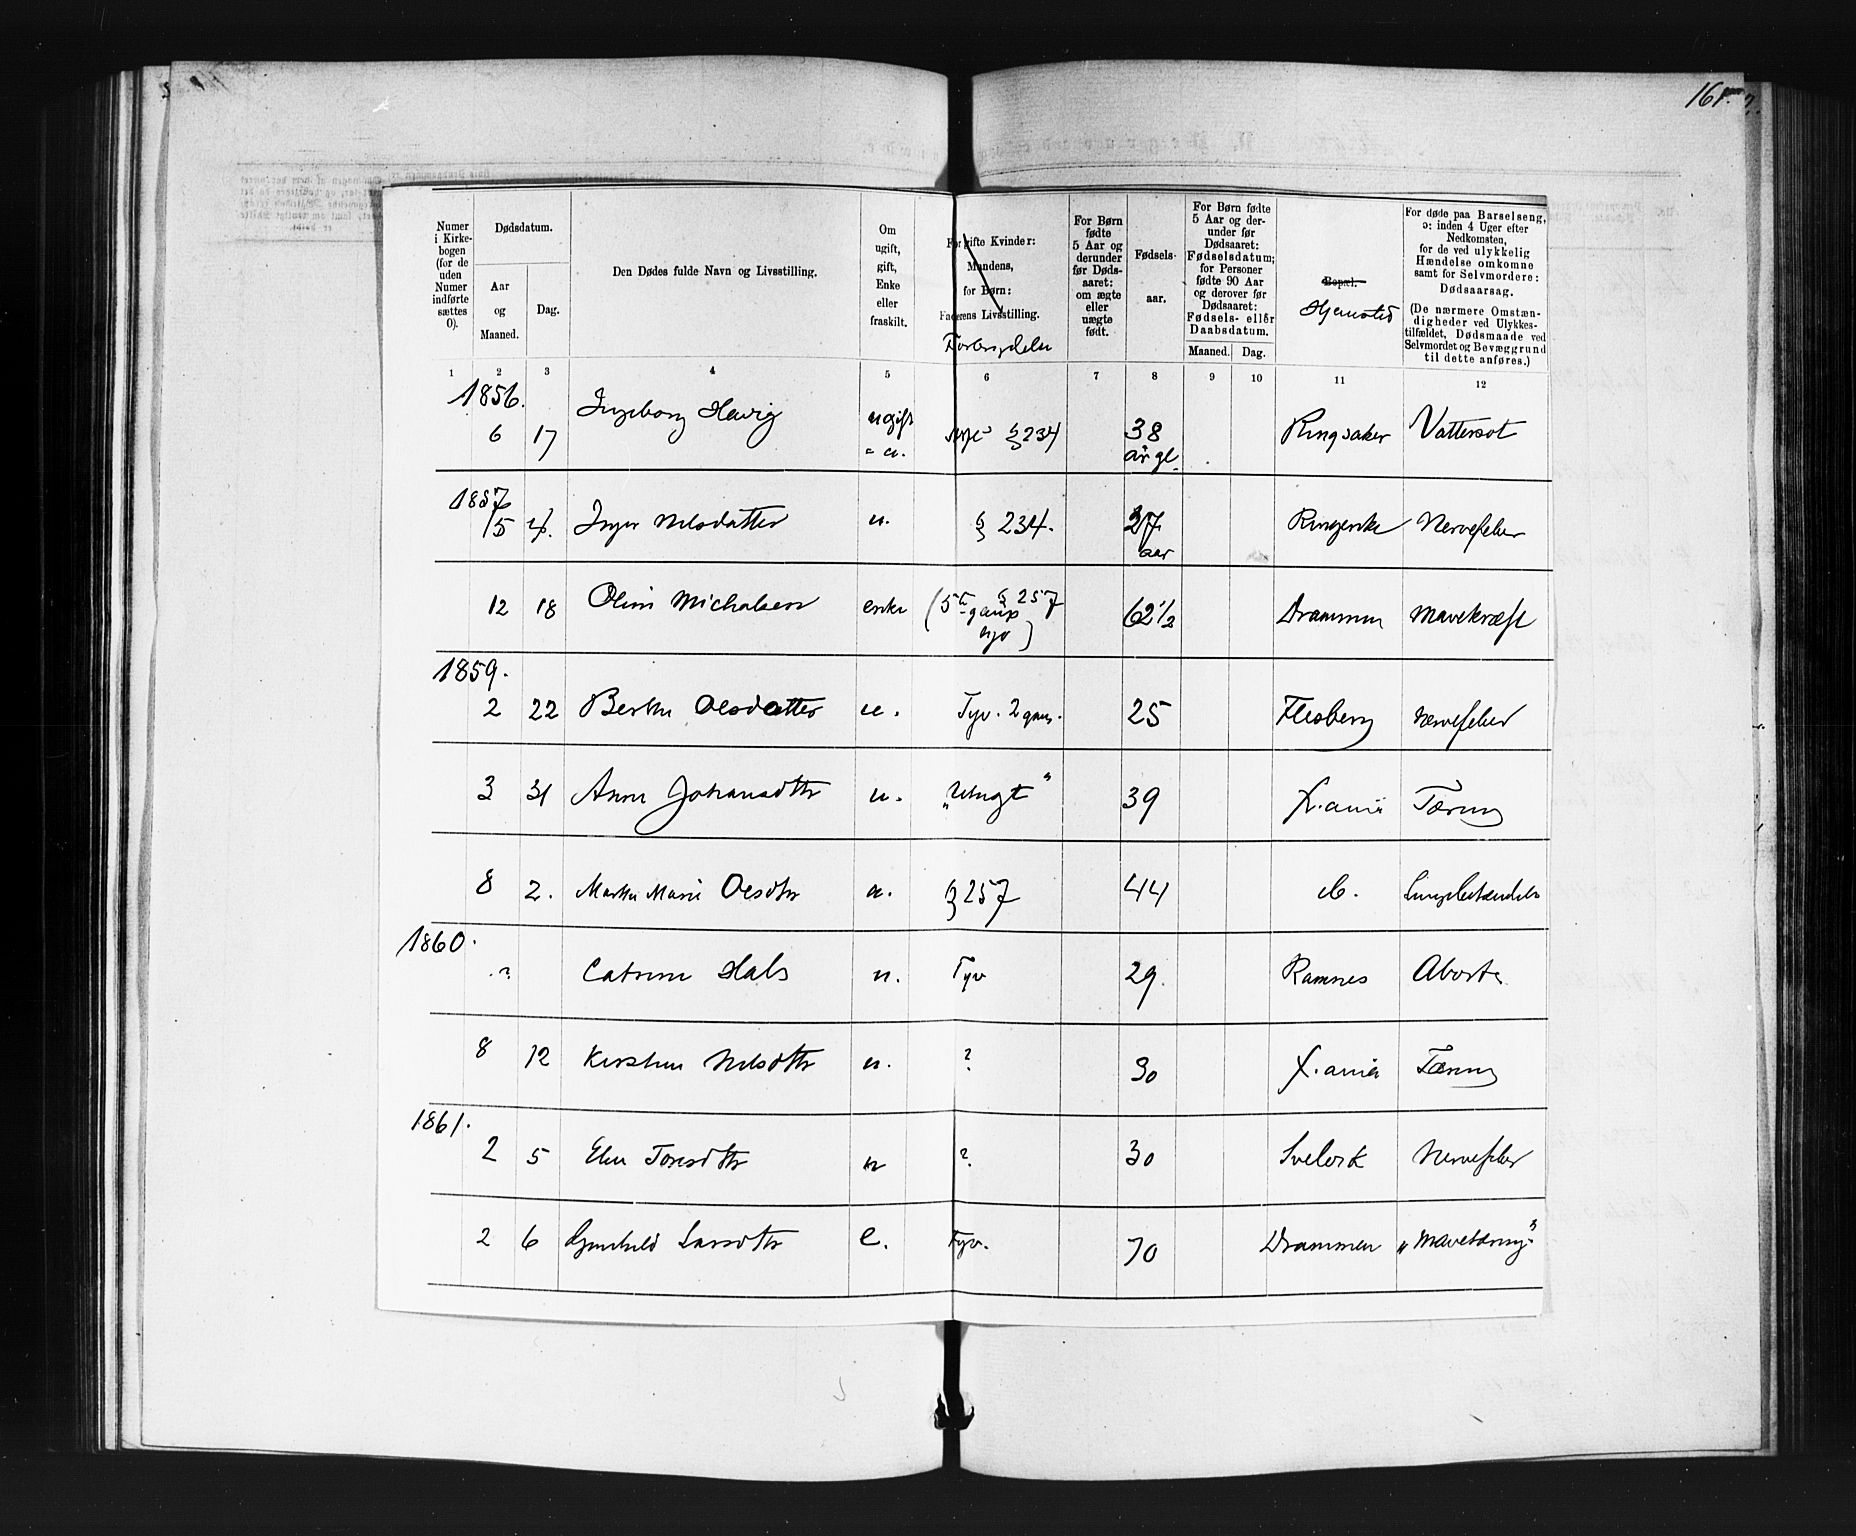 161.
Numer
i Kirke-
bogen
(for de
uden
Numer
indførte
sættes
0).
Dødsdatum.
Aar
og
Maaned.
Dag.
Den Dødes fulde Navn og Livsstilling.
Om
ugift,
gift,
Enke
eller
fraskilt.
For gifte Kvinder:
Mandens,
for Børn:
Faderens Livsstilling.
Forbrydelse
For Børn
fødte
5 Aar og
derunder
før Døds-
aaret:
om ægte
eller
uægte
født.
Fødsels-
aar.
For Børn fødte
5 Aar og der-
under før
Dødsaaret:
Fødselsdatum;
for Personer
fødte 90 Aar
og derover før
Dødsaaret:
Fødsels- eller
Daabsdatum.
Maaned. Dag.
Bopæl.
Hjemsted
For døde paa Barselseng,
ɔ: inden 4 Uger efter
Nedkomsten,
for de ved ulykkelig
Hændelse omkomne
samt for Selvmordere:
Dødsaarsag.
(De nærmere Omstæn-
digheder ved Ulykkes-
tilfældet, Dødsmaade ved
Selvmordet og Bevæggrund
til dette anføres.)
1 2 3 4 5 6 7 8 9 10 11 12
1856.
6 17 Ingeborg Hervig ugift § 234 38 Ringsaker Vattersot
= u. år gl.
1857
5 4. Inger Nilsdatter u. § 234. 27 Ringerike Nervefeber
aar
12 18 Oline Michalsen enke (5te § 257 62 1/2 Drammen Mavekræft
gang
tyv)
1859.
2 22 Berthe Olsdatter u. Tyv. 2 gang. 25 Flesberg Nervefeber
3 31 Anne Johansdtr u. „Utugt" 39 X.ania Tæring
8 2. Marthe Marie Olsdtr u. § 257 44 do. Lungebetændelse
1860.
? Catrine Hals u. Tyv 29. Ramnes Aborte
8 12 Kirstine Nilsdtr u. ? 30 X.ania Tæring
1861.
2 5 Elen Toresdtr u ? 30 Svelvik Nervefeber
2 6 Gunhild Larsdtr e. Tyv. 70 Drammen „Mavetæring"